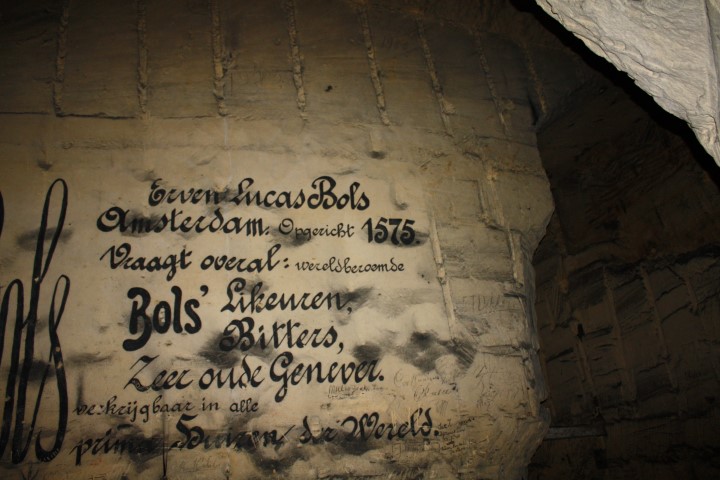 Erven Lucas Bols
Amsterdam. Opgericht 1575.
Vraagt overal: wereldberoemde
Bols' Likeuren,
Bitters,
Zeer oude Genever.
verkrijgbaar in alle
prima Huizen der Wereld.
Bols